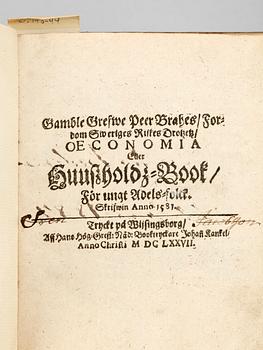 Gamble Grefwe Peer Brahes/ For-
dom Sweriges Rikes Drotzetz/
OECONOMIA
Eller
Huußholdz-Book/
För ungt Adels-folck.
Skrifwin Anno 1581.
Tryckt på Wijsingsborg/
Aff Hans Hög-Grefl: Nåd: Booktryckare Johan Kankel/
Anno Christi M DC LXXVII.